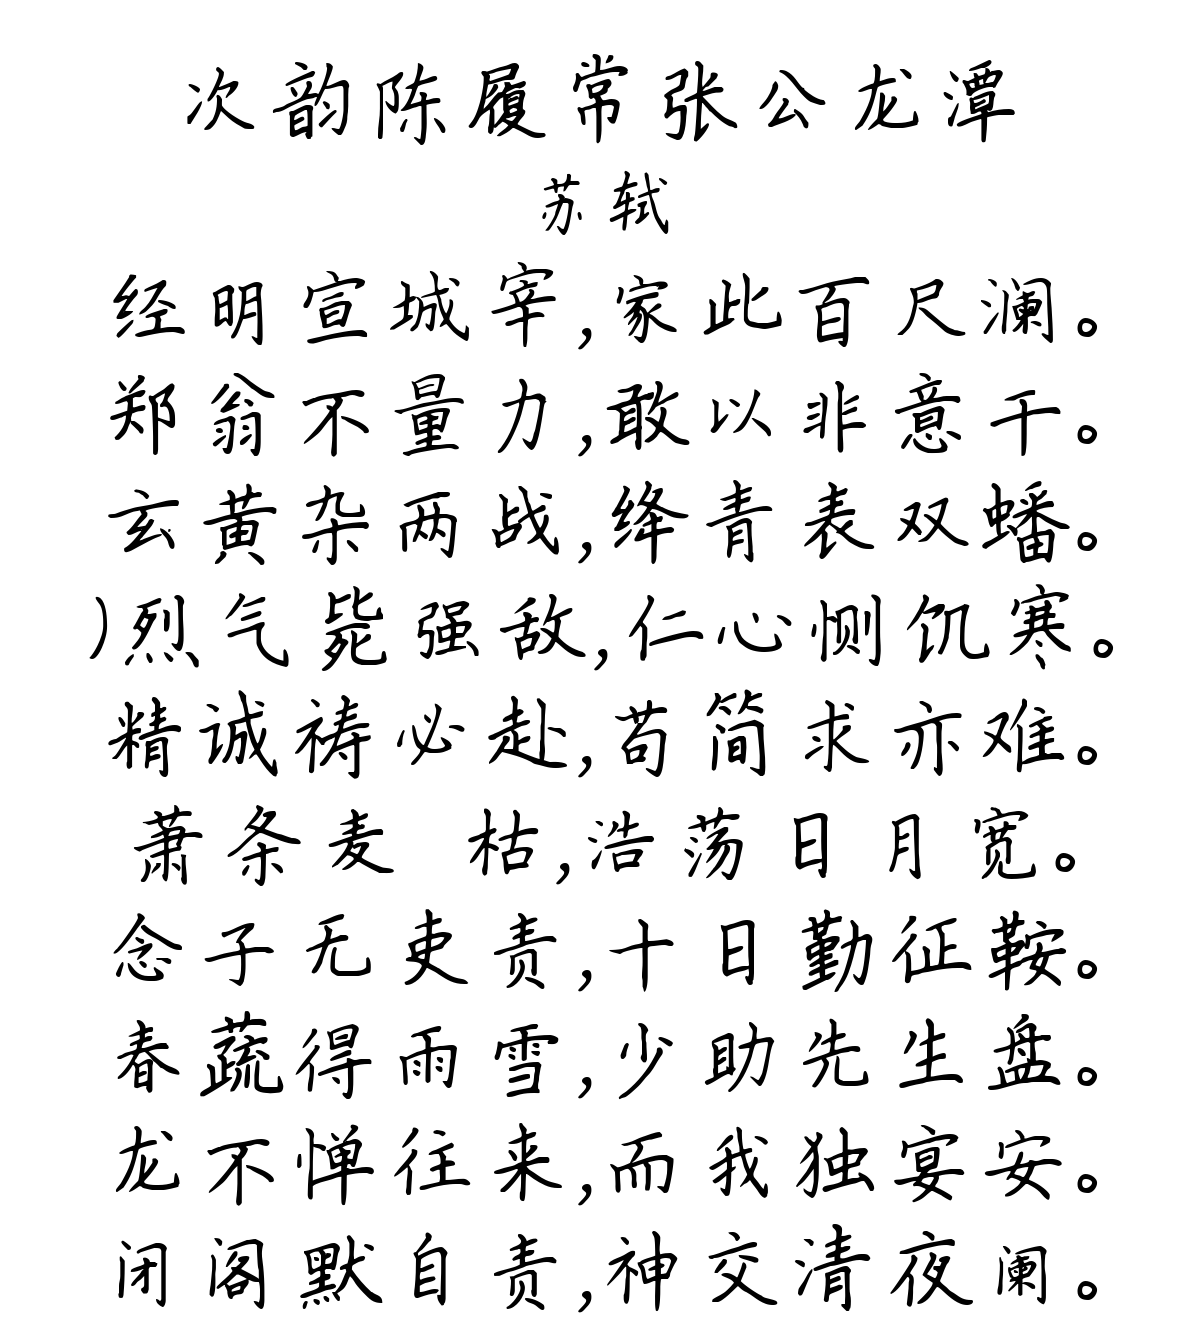 次韵陈履常张公龙潭
苏轼
经明宣城宰,家此百尺澜。
郑翁不量力,敢以非意干。
玄黄杂两战,绛青表双蟠。
)烈气毙强敌,仁心恻饥寒。
精诚祷必赴,苟简求亦难。
萧条麦 枯,浩荡日月宽。
念子无吏责,十日勤征鞍。
春蔬得雨雪,少助先生盘。
龙不惮往来,而我独宴安。
闭阁默自责,神交清夜阑。